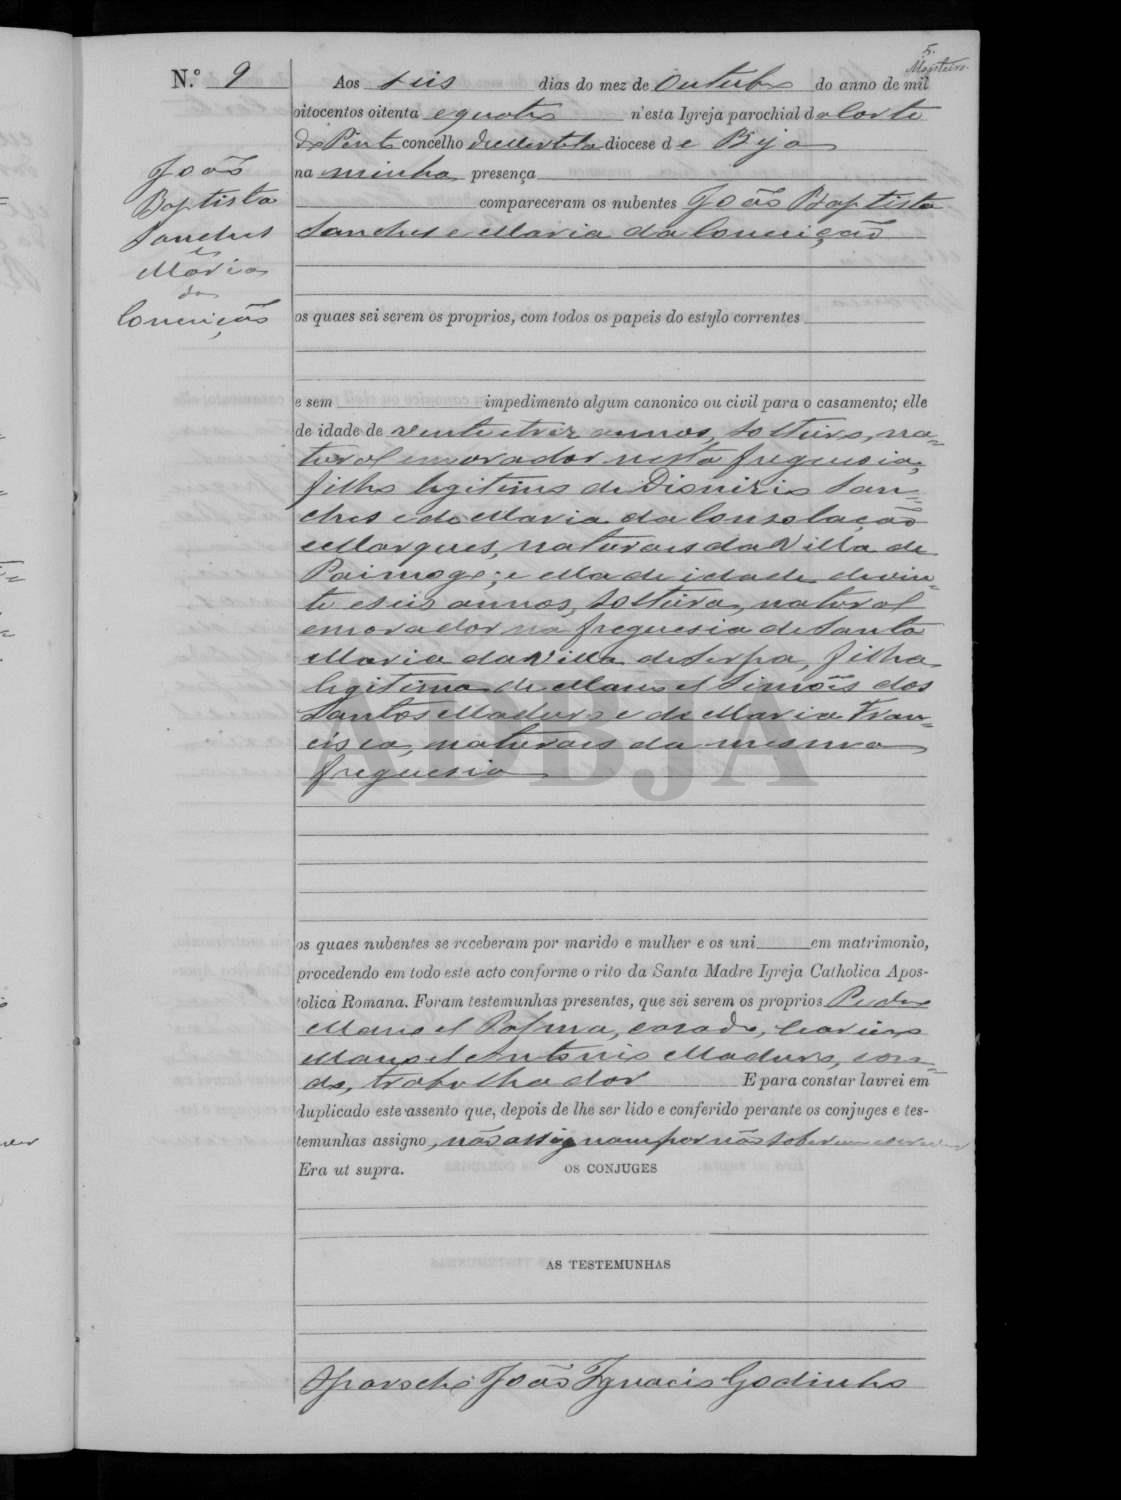 5.
Monteiro
N.º 9
João
Baptista
Sanches
e
Maria
da
Conceição
Aos seis dias do mez de Outubro do anno de mil
oitocentos oitenta e quatro n'esta Igreja parochial da Corte
do Pinto concelho de Mertola diocese de Beja
na minha presença
compareceram os nubentes João Baptista
Sanches e Maria da Conceição
os quaes sei serem os proprios, com todos os papeis do estylo correntes
e sem impedimento algum canonico ou civil para o casamento; elle
de idade de vinte e trez annos, solteiro, na=
tural e morador nesta freguesia,
filho legitimo de Dionizio San=
ches e de Maria da Consolação
e Marques, naturaes da Villa de
Paimogo; e ella de idade de vin=
te e seis annos, solteira, natural
e morador na freguesia de Santa
Maria da Villa de Serpa, filha
legitima de Manoel Simões dos
Santos Maduro e de Maria Fran=
cisca, naturaes da mesma
freguesia
os quaes nubentes se receberam por marido e mulher e os uni em matrimonio,
procedendo em todo este acto conforme o rito da Santa Madre Igreja Catholica Apos-
tolica Romana. Foram testemunhas presentes, que sei serem os proprios Pedro
Manoel Palma, casado,
Manoel Antonio Maduro, casa=
do, trabalhador E para constar lavrei em
duplicado este assento que, depois de lhe ser lido e conferido perante os conjuges e tes-
temunhas assigno, não assignam por não saberem escrever
Era ut supra.
OS CONJUGES
AS TESTEMUNHAS
O Parocho João Ignacio Godinho
ADBJA